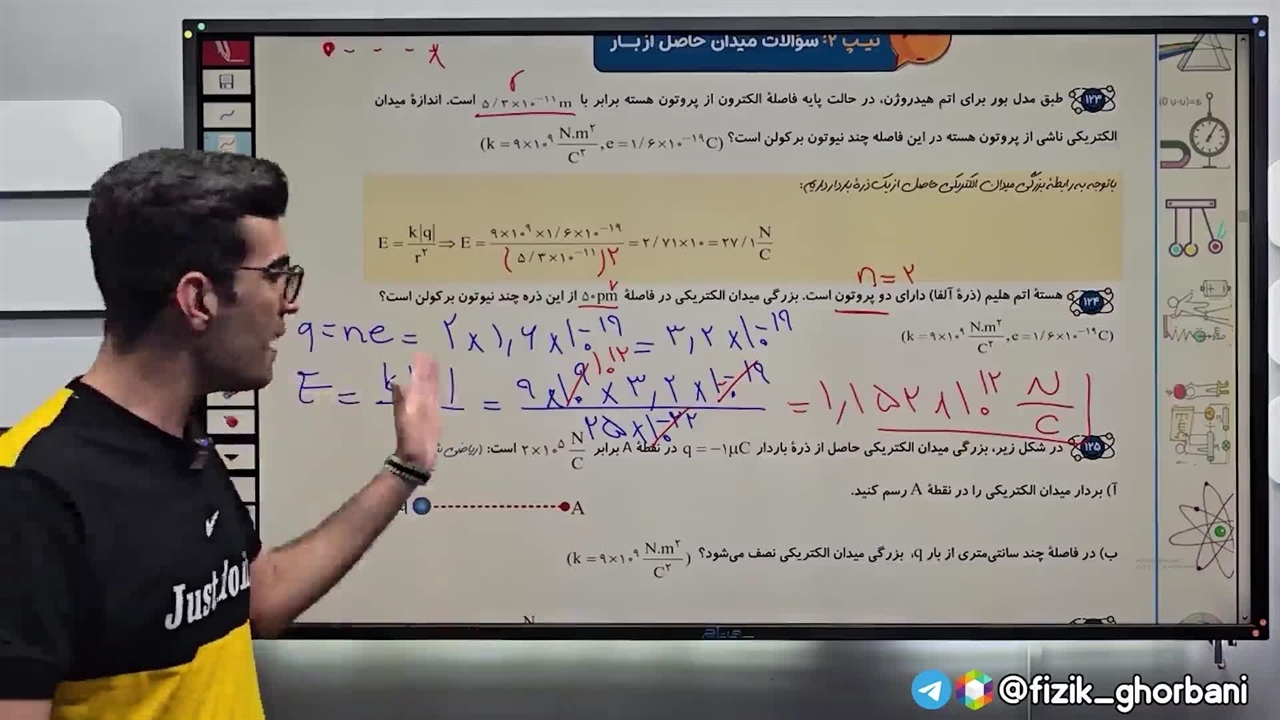 تیپ ۲: سؤالات میدان حاصل از بار
۱۲۳ طبق مدل بور برای اتم هیدروژن، در حالت پایه فاصلهٔ الکترون از پروتون هسته برابر با ۵/۳×۱۰⁻¹¹ m است. اندازهٔ میدان
الکتریکی ناشی از پروتون هسته در این فاصله چند نیوتون برکولن است؟ (k = ۹×۱۰⁹ N.m²/C², e = ۱/۶×۱۰⁻¹⁹ C)
باتوجه به رابطهٔ بزرگی میدان الکتریکی حاصل از یک ذرهٔ باردار داریم:
E = k|q|/r² ⇒ E = ۹×۱۰⁹×۱/۶×۱۰⁻¹⁹/(۵/۳×۱۰⁻¹¹)۲ = ۲/۷۱×۱۰ = ۲۷/۱ N/C
n = ۲
۱۲۴ هستهٔ اتم هلیم (ذرهٔ آلفا) دارای دو پروتون است. بزرگی میدان الکتریکی در فاصلهٔ ۵۰pm از این ذره چند نیوتون برکولن است؟
(k = ۹×۱۰⁹ N.m²/C², e = ۱/۶×۱۰⁻¹⁹ C)
q = ne = ۲ × ۱,۶ × ۱۰⁻¹⁹ = ۳,۲ × ۱۰⁻¹⁹
۱۰¹²
E = ۹ × ۱۰⁹ × ۳,۲ × ۱۰⁻¹⁹/۲۵ × ۱۰⁻²² = ۱,۱۵۲ × ۱۰¹² N/C
۱۲۵ در شکل زیر، بزرگی میدان الکتریکی حاصل از ذرهٔ باردار q = −۱μC در نقطهٔ A برابر ۲×۱۰⁵ N/C است: (ریاضی
آ) بردار میدان الکتریکی را در نقطهٔ A رسم کنید.
A
ب) در فاصلهٔ چند سانتی‌متری از بار q، بزرگی میدان الکتریکی نصف می‌شود؟ (k = ۹×۱۰⁹ N.m²/C²)
N
Just do it
@fizik_ghorbani